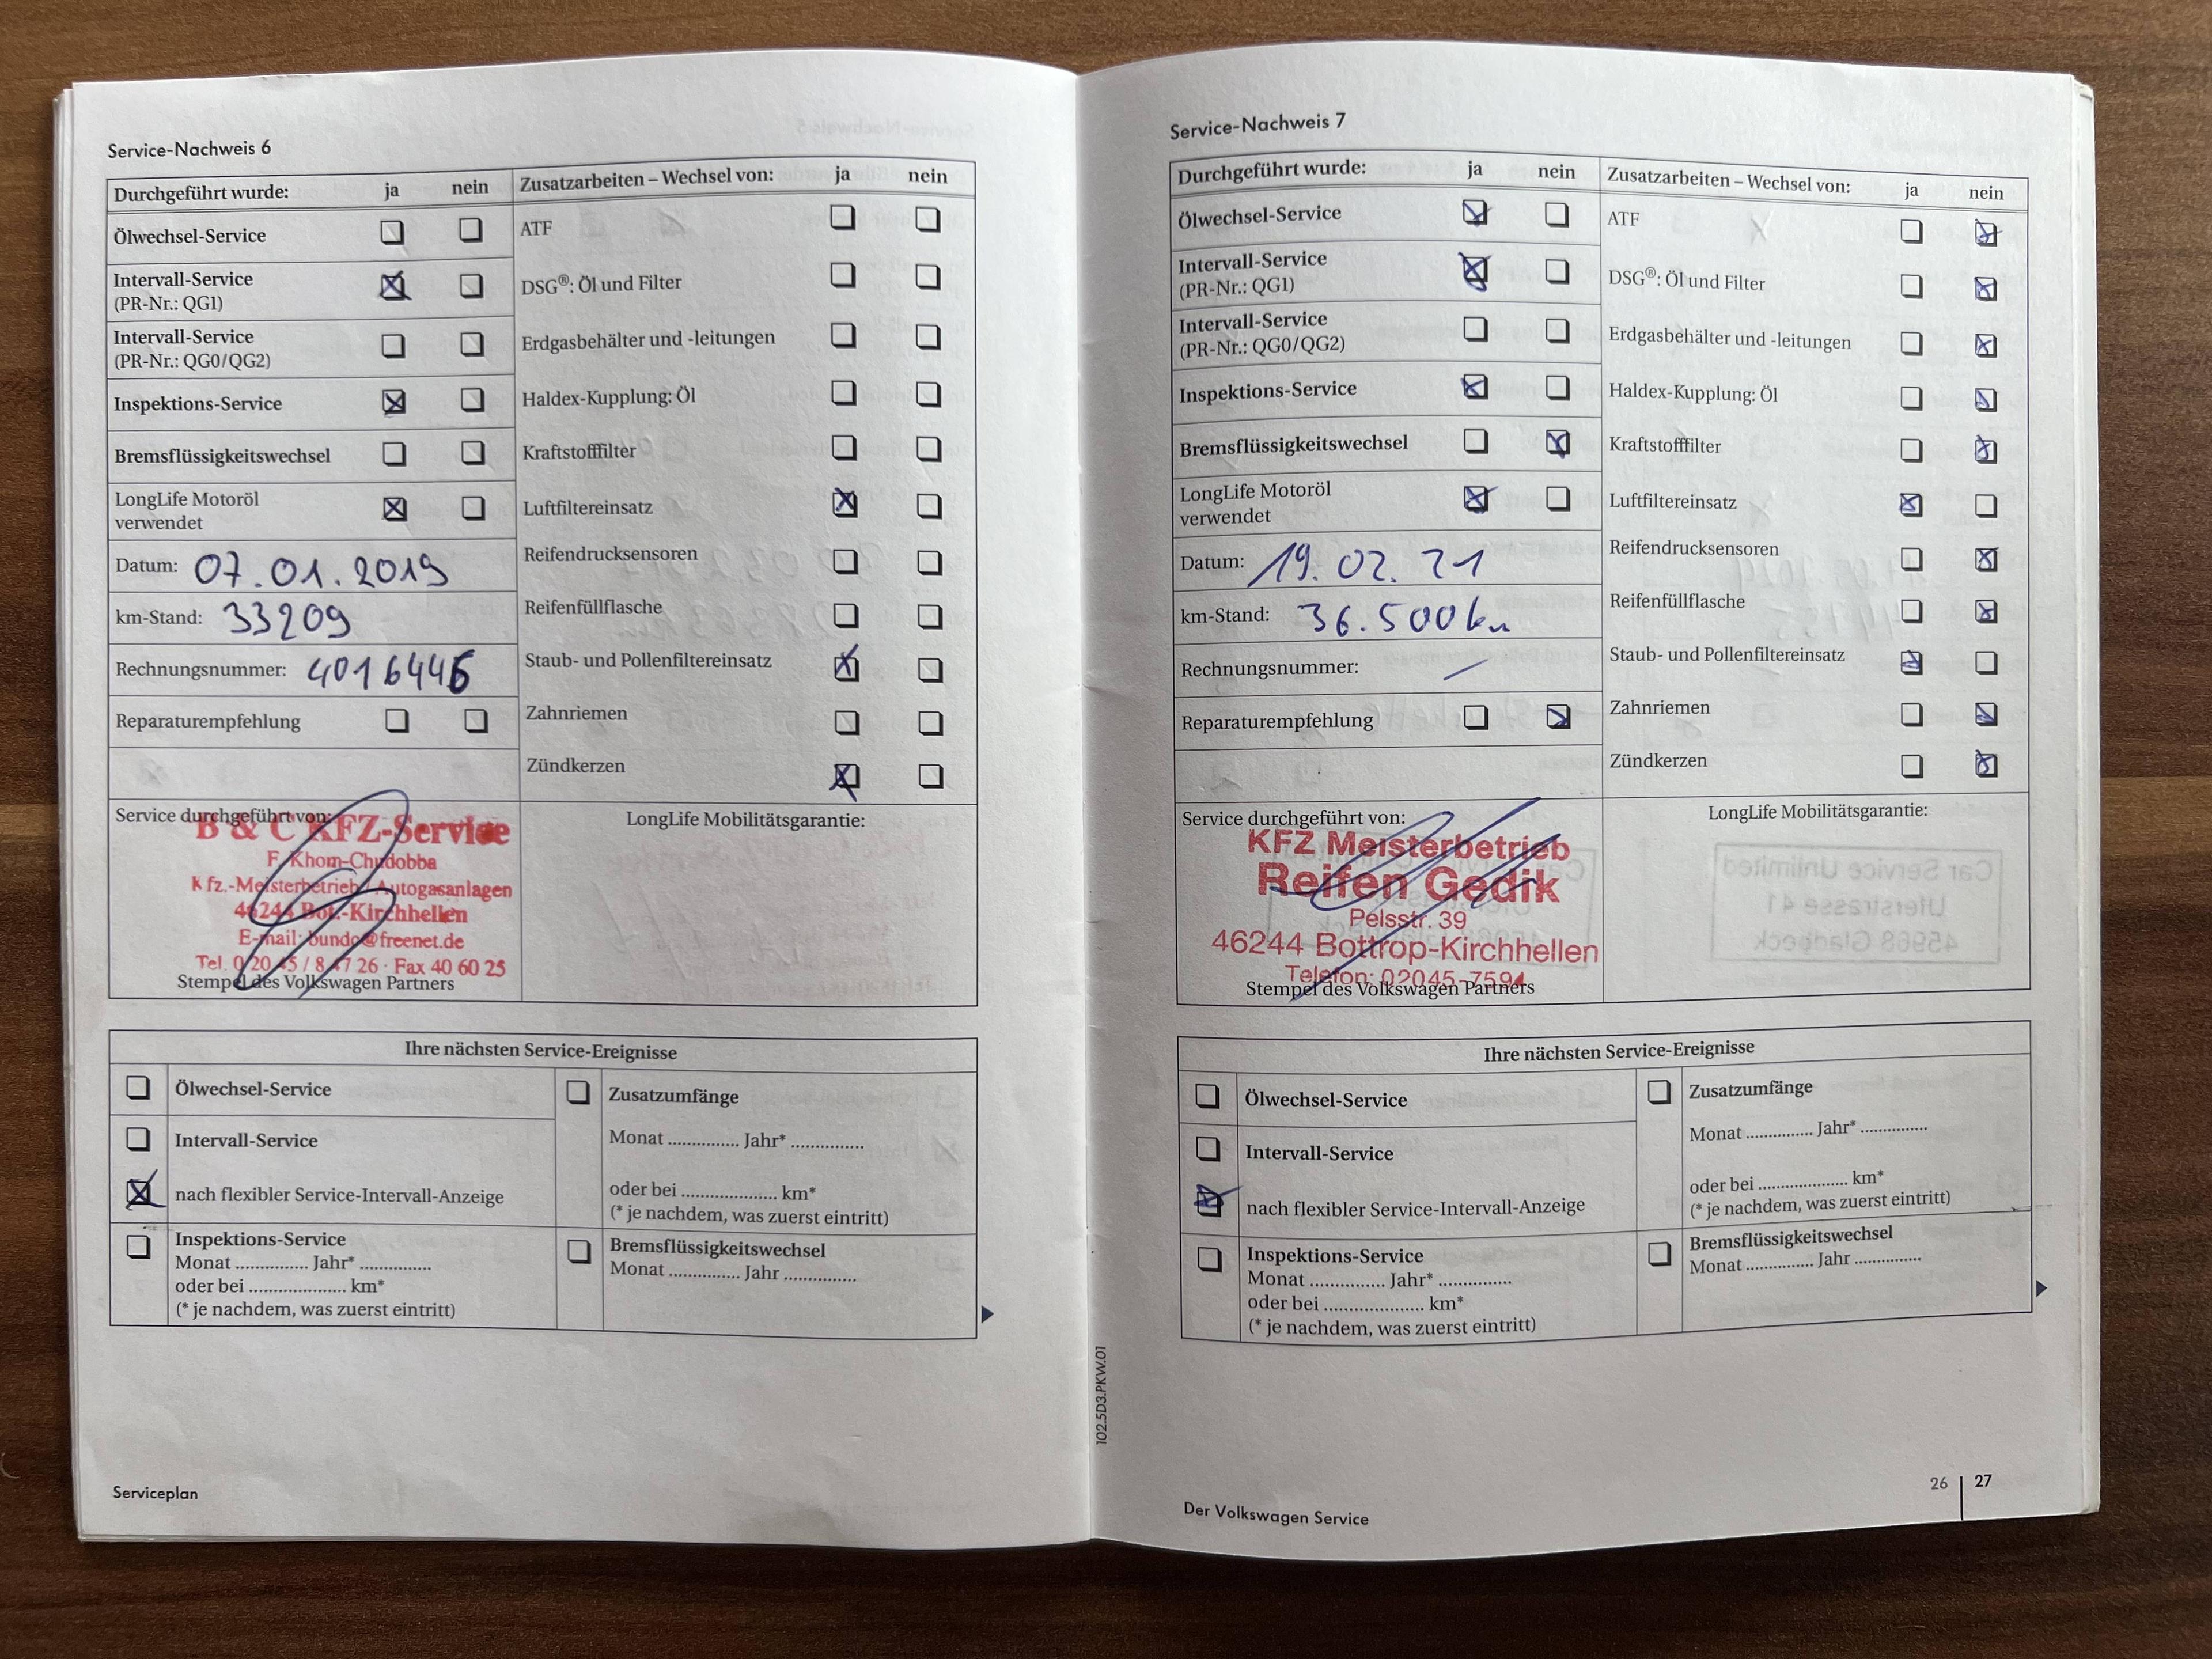 Service-Nachweis 6
Durchgeführt wurde: ja nein
Ölwechsel-Service
Intervall-Service
(PR-Nr.: QG1)
Intervall-Service
(PR-Nr.: QG0/QG2)
Inspektions-Service
Bremsflüssigkeitswechsel
LongLife Motoröl
verwendet
Datum: 07.01.2019
km-Stand: 33209
Rechnungsnummer: 4016446
Reparaturempfehlung
Zusatzarbeiten – Wechsel von: ja nein
ATF
DSG®: Öl und Filter
Erdgasbehälter und -leitungen
Haldex-Kupplung: Öl
Kraftstofffilter
Luftfiltereinsatz
Reifendrucksensoren
Reifenfüllflasche
Staub- und Pollenfiltereinsatz
Zahnriemen
Zündkerzen
Service durchgeführt von:
B & C KFZ-Service
F. Khom-Chudobba
Kfz.-Meisterbetrieb / Autogasanlagen
46244 Bot.-Kirchhellen
E-mail: bundc@freenet.de
Tel. 0 20 45 / 8 47 26 · Fax 40 60 25
Stempel des Volkswagen Partners
LongLife Mobilitätsgarantie:
Ihre nächsten Service-Ereignisse
Ölwechsel-Service
Intervall-Service
nach flexibler Service-Intervall-Anzeige
Inspektions-Service
Monat .............. Jahr* ..............
oder bei .................... km*
(* je nachdem, was zuerst eintritt)
Zusatzumfänge
Monat .............. Jahr* ..............
oder bei .................... km*
(* je nachdem, was zuerst eintritt)
Bremsflüssigkeitswechsel
Monat .............. Jahr ..............
Serviceplan
Service-Nachweis 7
Durchgeführt wurde: ja nein
Ölwechsel-Service
Intervall-Service
(PR-Nr.: QG1)
Intervall-Service
(PR-Nr.: QG0/QG2)
Inspektions-Service
Bremsflüssigkeitswechsel
LongLife Motoröl
verwendet
Datum: 19.02.21
km-Stand: 36.500 km
Rechnungsnummer: /
Reparaturempfehlung
Zusatzarbeiten – Wechsel von: ja nein
ATF
DSG®: Öl und Filter
Erdgasbehälter und -leitungen
Haldex-Kupplung: Öl
Kraftstofffilter
Luftfiltereinsatz
Reifendrucksensoren
Reifenfüllflasche
Staub- und Pollenfiltereinsatz
Zahnriemen
Zündkerzen
Service durchgeführt von:
KFZ Meisterbetrieb
Reifen Gedik
Pelsstr. 39
46244 Bottrop-Kirchhellen
Telefon: 02045-7594
Stempel des Volkswagen Partners
LongLife Mobilitätsgarantie:
Ihre nächsten Service-Ereignisse
Ölwechsel-Service
Intervall-Service
nach flexibler Service-Intervall-Anzeige
Inspektions-Service
Monat .............. Jahr* ..............
oder bei .................... km*
(* je nachdem, was zuerst eintritt)
Zusatzumfänge
Monat .............. Jahr* ..............
oder bei .................... km*
(* je nachdem, was zuerst eintritt)
Bremsflüssigkeitswechsel
Monat .............. Jahr ..............
102.5D3.PKW.01
Der Volkswagen Service
26 | 27